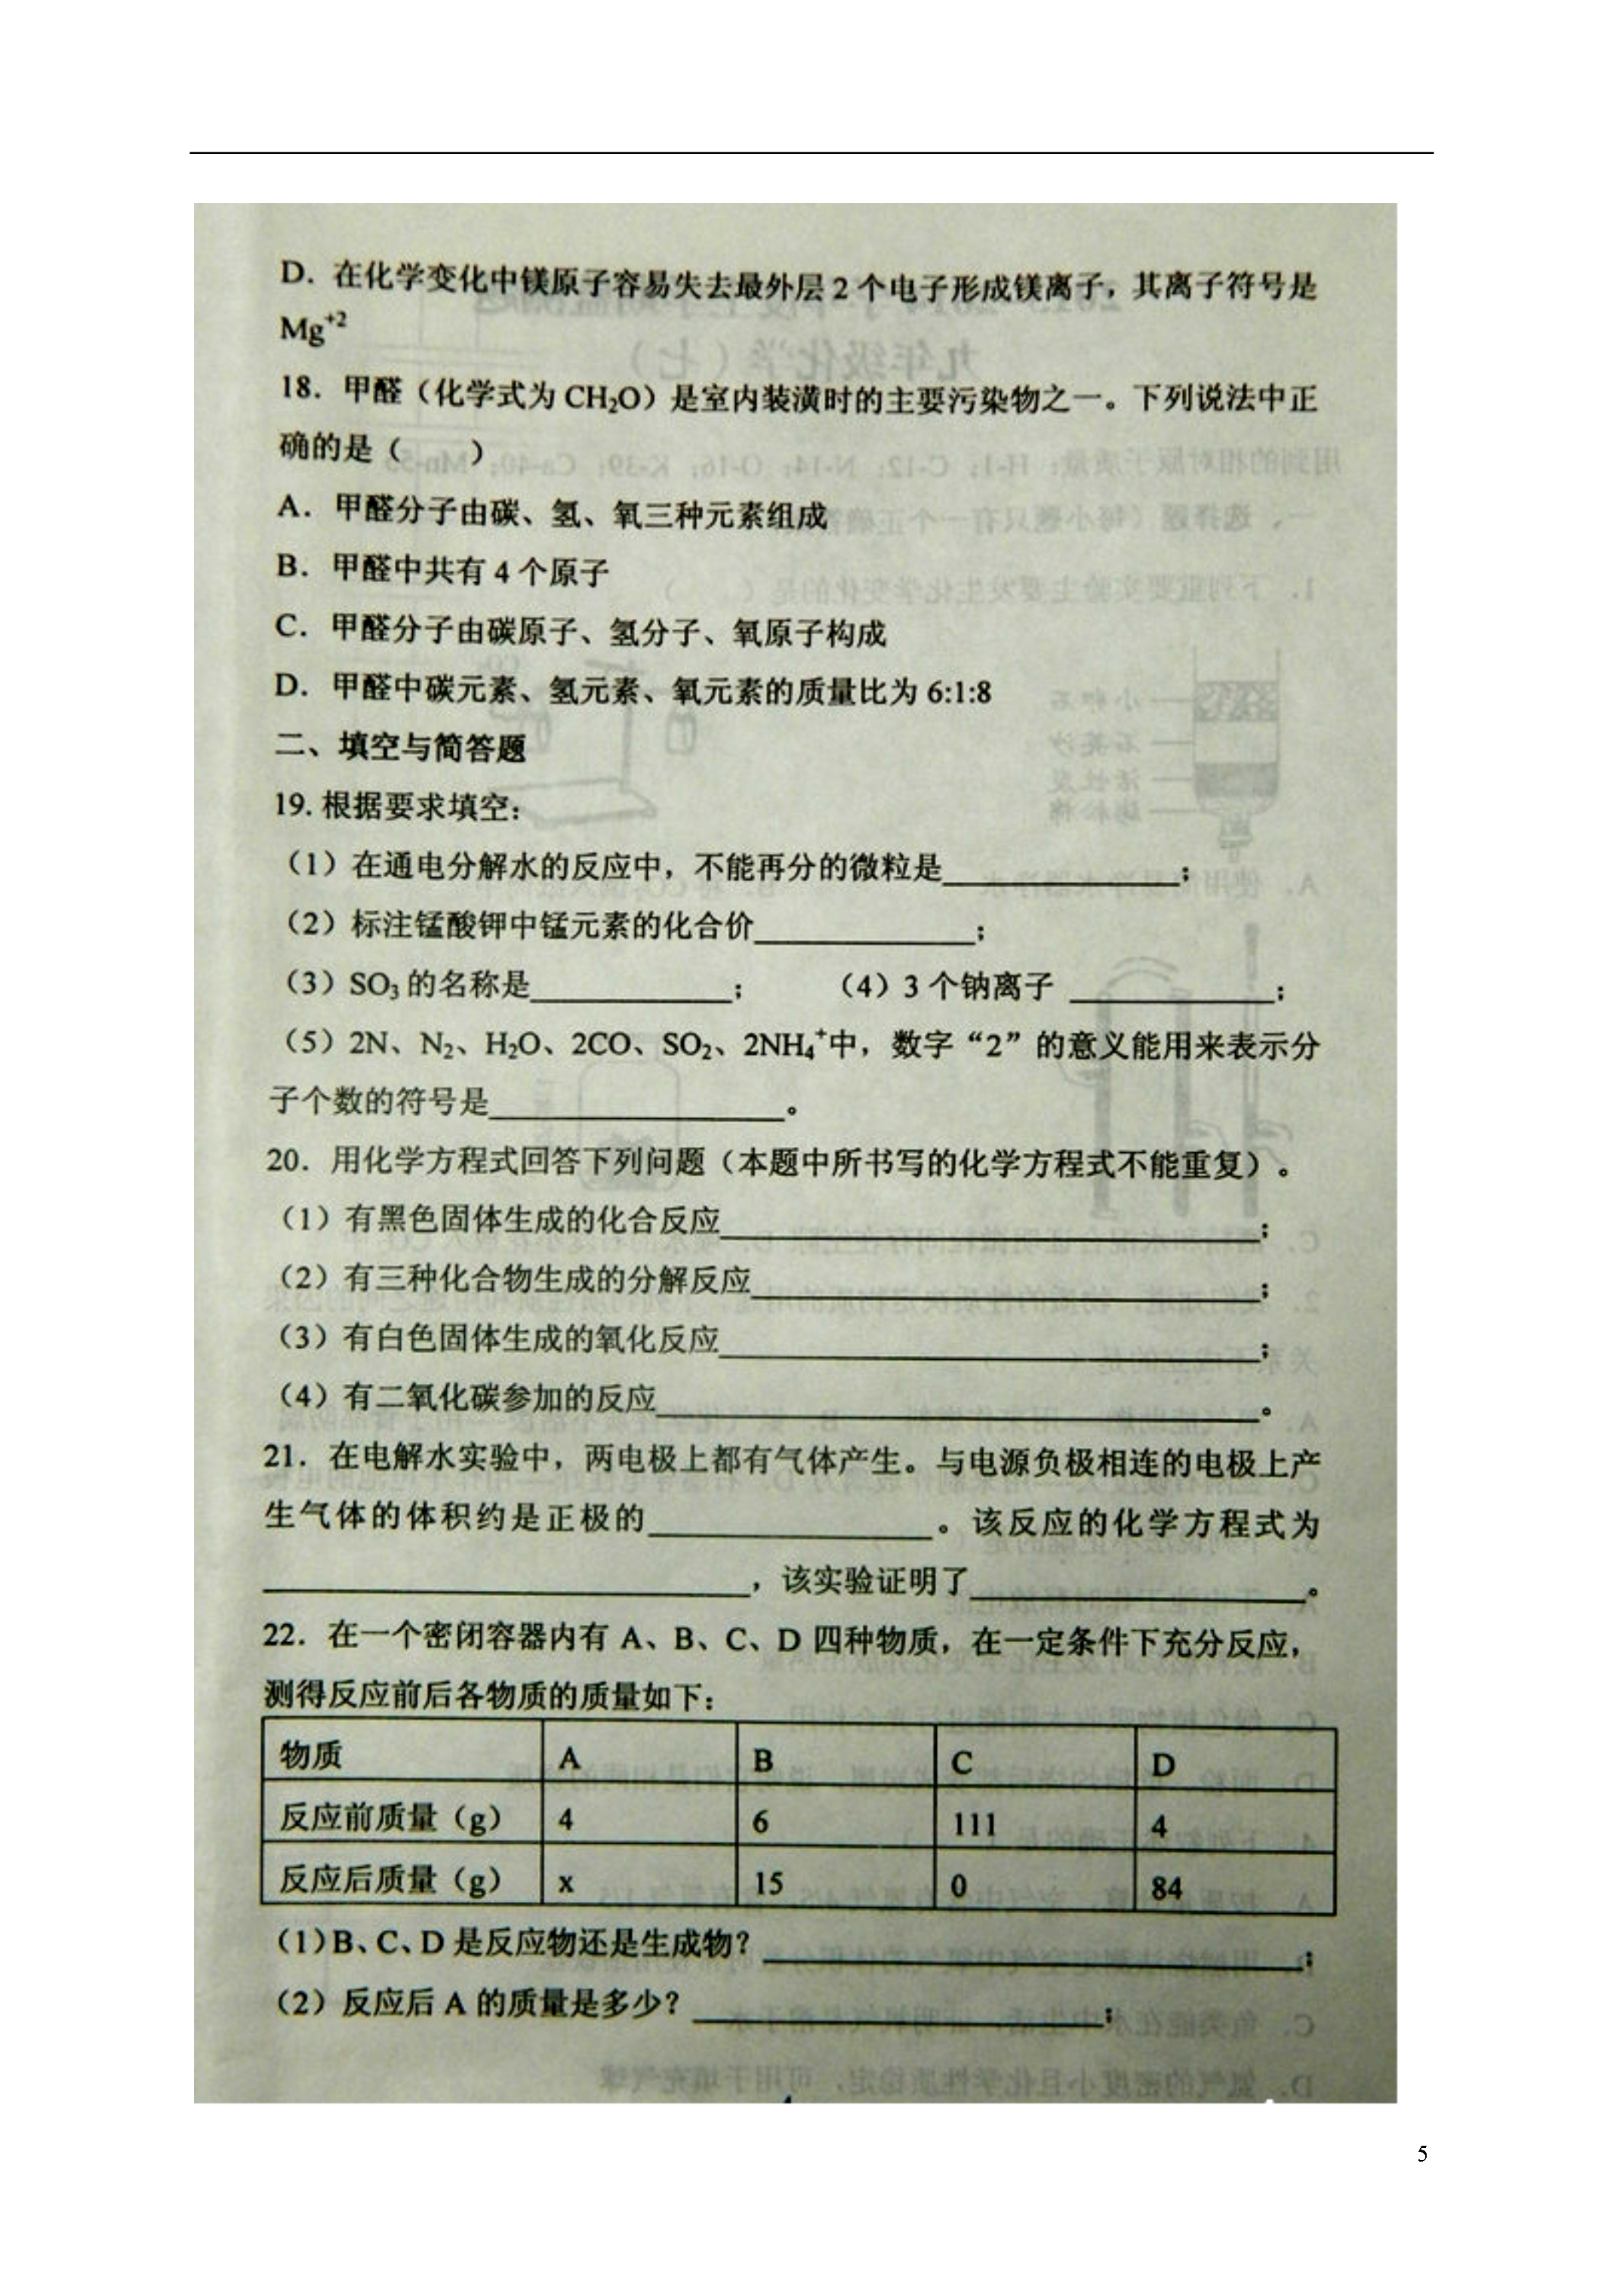 D．在化学变化中镁原子容易失去最外层 2 个电子形成镁离子，其离子符号是
Mg⁺²
18．甲醛（化学式为 CH₂O）是室内装潢时的主要污染物之一。下列说法中正
确的是（　　）
A．甲醛分子由碳、氢、氧三种元素组成
B．甲醛中共有 4 个原子
C．甲醛分子由碳原子、氢分子、氧原子构成
D．甲醛中碳元素、氢元素、氧元素的质量比为 6:1:8
二、填空与简答题
19. 根据要求填空：
（1）在通电分解水的反应中，不能再分的微粒是______；
（2）标注锰酸钾中锰元素的化合价______；
（3）SO₃ 的名称是______；　（4）3 个钠离子 ______；
（5）2N、N₂、H₂O、2CO、SO₂、2NH₄⁺中，数字“2”的意义能用来表示分
子个数的符号是______。
20．用化学方程式回答下列问题（本题中所书写的化学方程式不能重复）。
（1）有黑色固体生成的化合反应______；
（2）有三种化合物生成的分解反应______；
（3）有白色固体生成的氧化反应______；
（4）有二氧化碳参加的反应______。
21．在电解水实验中，两电极上都有气体产生。与电源负极相连的电极上产
生气体的体积约是正极的______。该反应的化学方程式为
______，该实验证明了______。
22．在一个密闭容器内有 A、B、C、D 四种物质，在一定条件下充分反应，
测得反应前后各物质的质量如下：
物质 A B C D
反应前质量（g） 4 6 111 4
反应后质量（g） x 15 0 84
（1）B、C、D 是反应物还是生成物？______；
（2）反应后 A 的质量是多少？______；
5